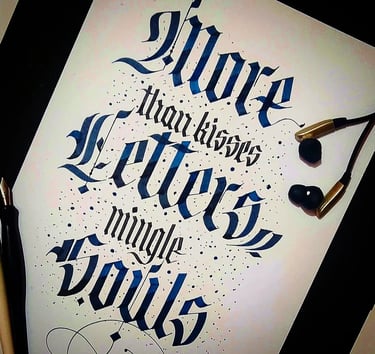 More
than kisses
Letters,
mingle
Souls